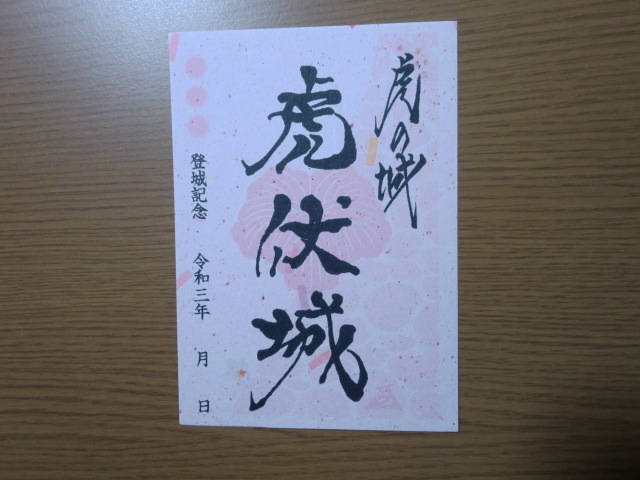 虎の城
虎伏城
登城記念 令和三年 月 日